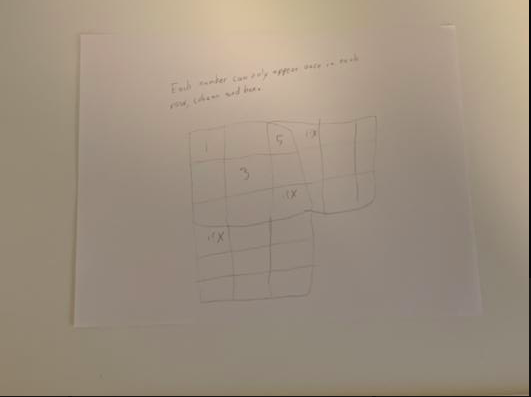 Each number can only appear once in each
row, column and box.
1 5 1X
3
1X
1X